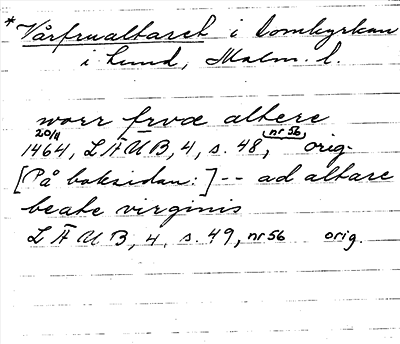 *Vårfrualtaret i Domkyrkan
i Lund, Malm. l.
worr frvæ altere
20/4
1464, LÄUB, 4, s. 48, nr 56 orig.
[På baksidan:] -- ad altare
beate virginis
LÄUB, 4, s. 49, nr 56 orig.